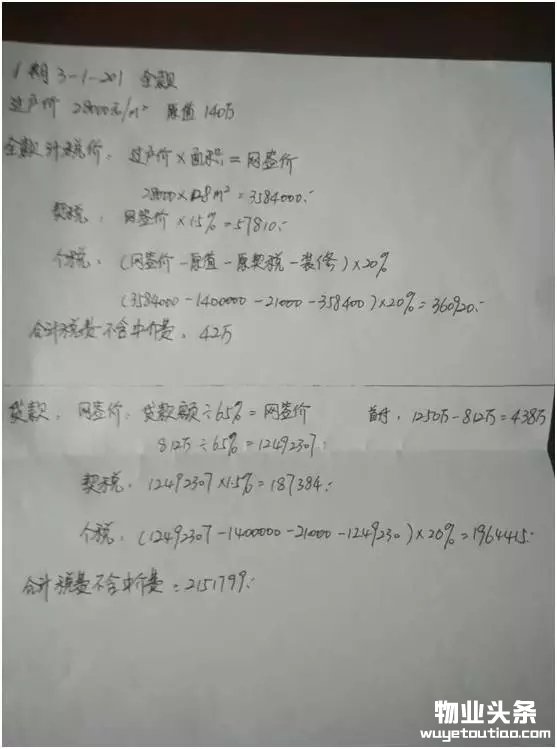 1期 3-1-201 全款
过户价 28000元/m² 原值 140万
全款计税价: 过户价×面积=网签价
28000×128m²=3584000.-
契税: 网签价×1.5%=57810.-
个税: (网签价-原值-原契税-装修)×20%
(3584000-1400000-21000-358400)×20%=360920.-
合计税费不含中介费: 42万
贷款: 网签价: 贷款额÷65%=网签价 首付: 1250万-812万=438万
812万÷65%=12492307.-
契税: 12492307×1.5%=187384.-
个税: (12492307-1400000-21000-1249230)×20%=1964415.-
合计税费不含中介费=2151799.-
物业头条
wuyetoutiao.com